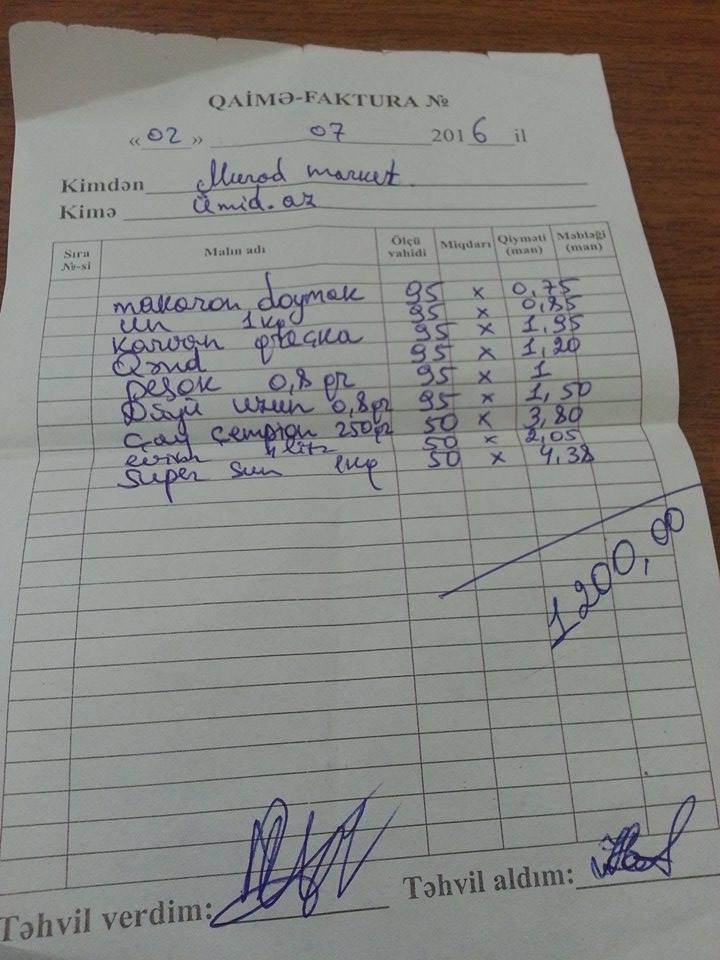 QAİMƏ-FAKTURA №
« 02 » 07 2016 il
Kimdən Murad market
Kimə Ümid.az
Sıra №-si Malın adı Ölçü vahidi Miqdarı Qiyməti (man) Məbləği (man)
makaron doymak 95 x 0,75
un 1 kq 95 x 0,85
Karvan 95 x 1,95
Qənd 95 x 1,20
pesok 0,8 gr 95 x 1
Düyü uzun 0,8 gr 95 x 1,50
Çay çempion 250 gr 50 x 3,80
1 litr 50 x 2,05
Super sun 1 kq 50 x 4,38
1200,00
Təhvil verdim:
Təhvil aldım: